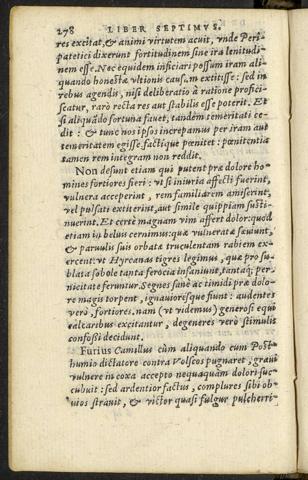 278 LIBER SEPTIMVS.
res excitat, & animi virtutem acuit, vnde Peri-
patetici dixerunt fortitudinem sine ira lenitudi-
nem esse. Nec equidem inficiari possum iram ali-
quando honestæ vltionis caus.m extitisse: sed in
rebus agendis, nisi deliberatio à ratione profici-
scatur, rarò recta res aut stabilis esse poterit. Et
si aliquãdo fortuna fauet, tandem temeritati ce-
dit: & tunc nos ipsos increpamus per iram aut
temeritatem egisse, factique pœnitet: pœnitentia
tamen rem integram non reddit.
Non desunt etiam qui putent præ dolore ho-
mines fortiores fieri: vt si iniuria affecti fuerint,
vulnera acceperint, rem familiarem amiserint,
vel pulsati extiterint, aut simile quippiam susti-
nuerint. Et certè magnam vim affert dolor: quod
etiam in beluis cernimus: quæ vulneratæ sæuiunt,
& paruulis suis orbatæ truculentam rabiem ex-
ercent: vt Hyrcanas tigres legimus, quæ pro su-
blata sobole tanta ferocia insaniunt, tantaq; per-
nicitate feruntur. Segnes sanè ac timidi præ dolo-
re magis torpent, ignauioresque fiunt: audentes
verò, fortiores. nam (vt videmus) generosi equi
calcaribus excitantur, degeneres verò stimulis
confossi decidunt.
Furius Camillus cùm aliquando cum Post-
humio dictatore contra Volscos pugnaret, graui
vulnere in coxa accepto nequaquàm dolori suc-
cubuit: sed ardentior factus, complures sibi ob-
uios strauit, & victor quasi fulgur pulcherri-